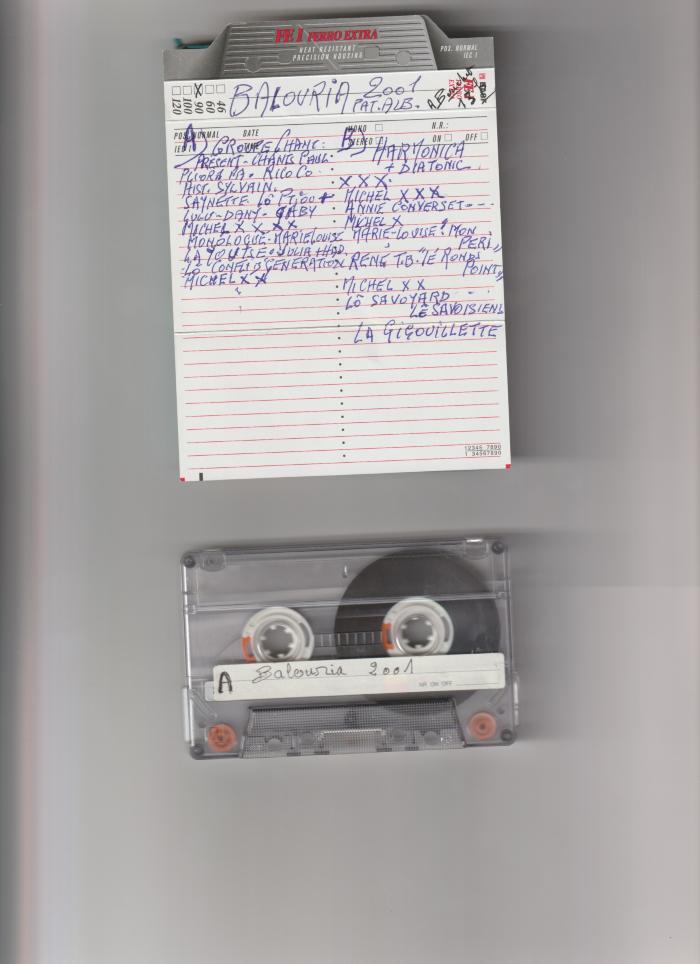 FE I FERRO EXTRA
HEAT RESISTANT
PRECISION HOUSING
POS. NORMAL
IEC I
46
60
90 X
100
120
BALOURIA 2001
PAT. ALB.
POS. NORMAL
DATE
MONO
STEREO
N.R.:
ON OFF
A) GROUPE CHANT:
PRESENT-CHANTS PAUL.
RICO CO
HIST. SYLVAIN.
SAYNETTE LÔ
LULU-DANY-GABY
MICHEL X X X X
MONOLOGUE-MARIE LOUISE
JULIA
CONFLIT GENERATION
MICHEL X X
B) HARMONICA
+ DIATONIC.
X X X
MICHEL X X X
ANNIE CONVERSET---
MICHEL X
MARIE-LOUISE! MON
PERE"
RENE T.B. "LE ROND
POINT"
MICHEL X X
LÔ SAVOYARD
LÊ SAVOISIEN
LA GIGOUILLETTE
12345 7890
1 34567890
A Balouria 2001
NR ON OFF